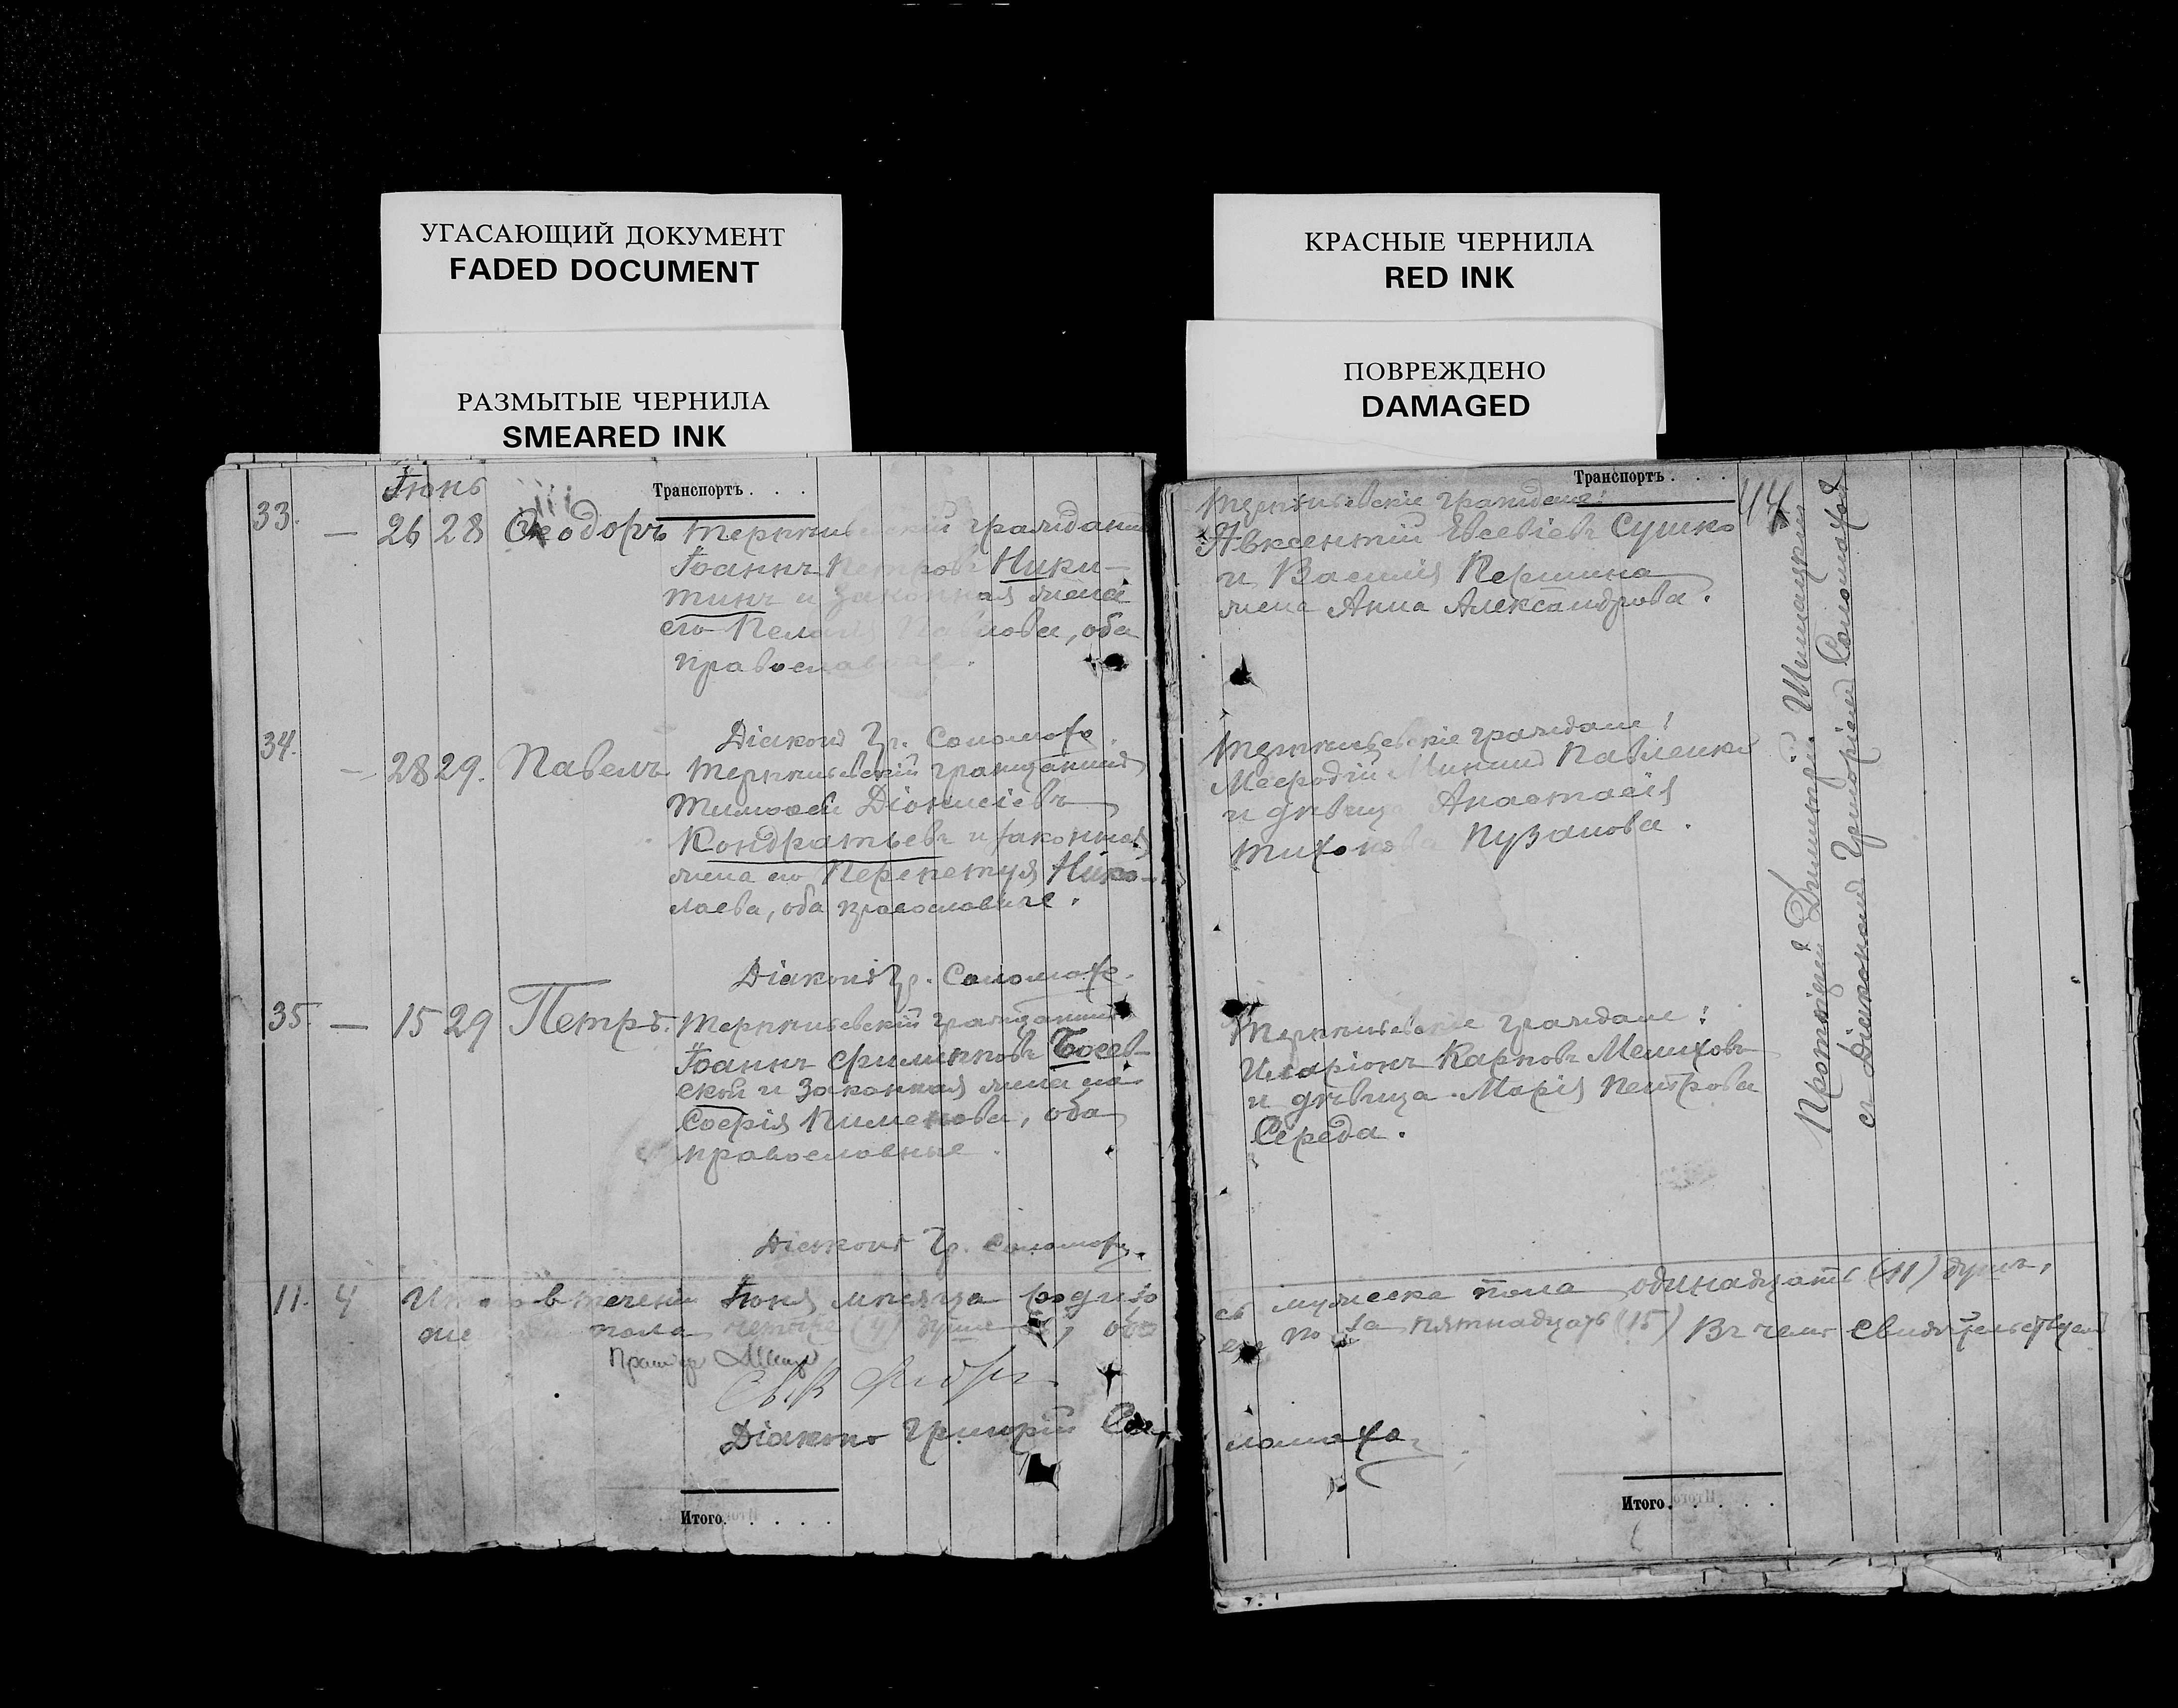 УГАСАЮЩИЙ ДОКУМЕНТ
FADED DOCUMENT
РАЗМЫТЫЕ ЧЕРНИЛА
SMEARED INK
КРАСНЫЕ ЧЕРНИЛА
RED INK
ПОВРЕЖДЕНО
DAMAGED
Іюнь
Транспортъ . . .
33. — 26 28 Ѳеодоръ гражданинъ
Іоаннъ Петровъ Ники-
тинъ и законная жена
его Пелагія Павлова, оба
православные.
Діаконъ Гр. Соломаха.
34. — 28 29. Павелъ гражданинъ
Тимоѳей Діонисіевъ
Кондратьевъ и законная
жена его Перепетуя Нико-
лаева, оба православные.
Діаконъ Гр. Соломаха.
35. — 15 29 Петръ. гражданинъ
Іоаннъ Филипповъ Босев-
ской и законная жена его
Софія Пименова, оба
православные.
Діаконъ Гр. Соломаха.
11. 4 Итого в течени Іюня мѣсяца
пола четыре (4) души, обо
Діаконъ Григорій Со-
Итого . . . . .
Транспортъ . . . .
44
граждане:
Авксентий Евсевіевъ Сушко
и Василія Першина
жена Анна Александрова.
граждане:
Меѳодій Мининъ Павленко
и дѣвица Анастасія
Тихонова Пузанова.
граждане:
Иларіонъ Карповъ Мелиховъ
и дѣвица Марія Петрова
Середа.
Протоіерей Димитрій
съ Діакономъ Григоріемъ Соломахой
пола одинадцать (11) душъ,
пятнадцать (15) Въ чемъ свидѣтельствуемъ
ломаха
Итого . . . . .